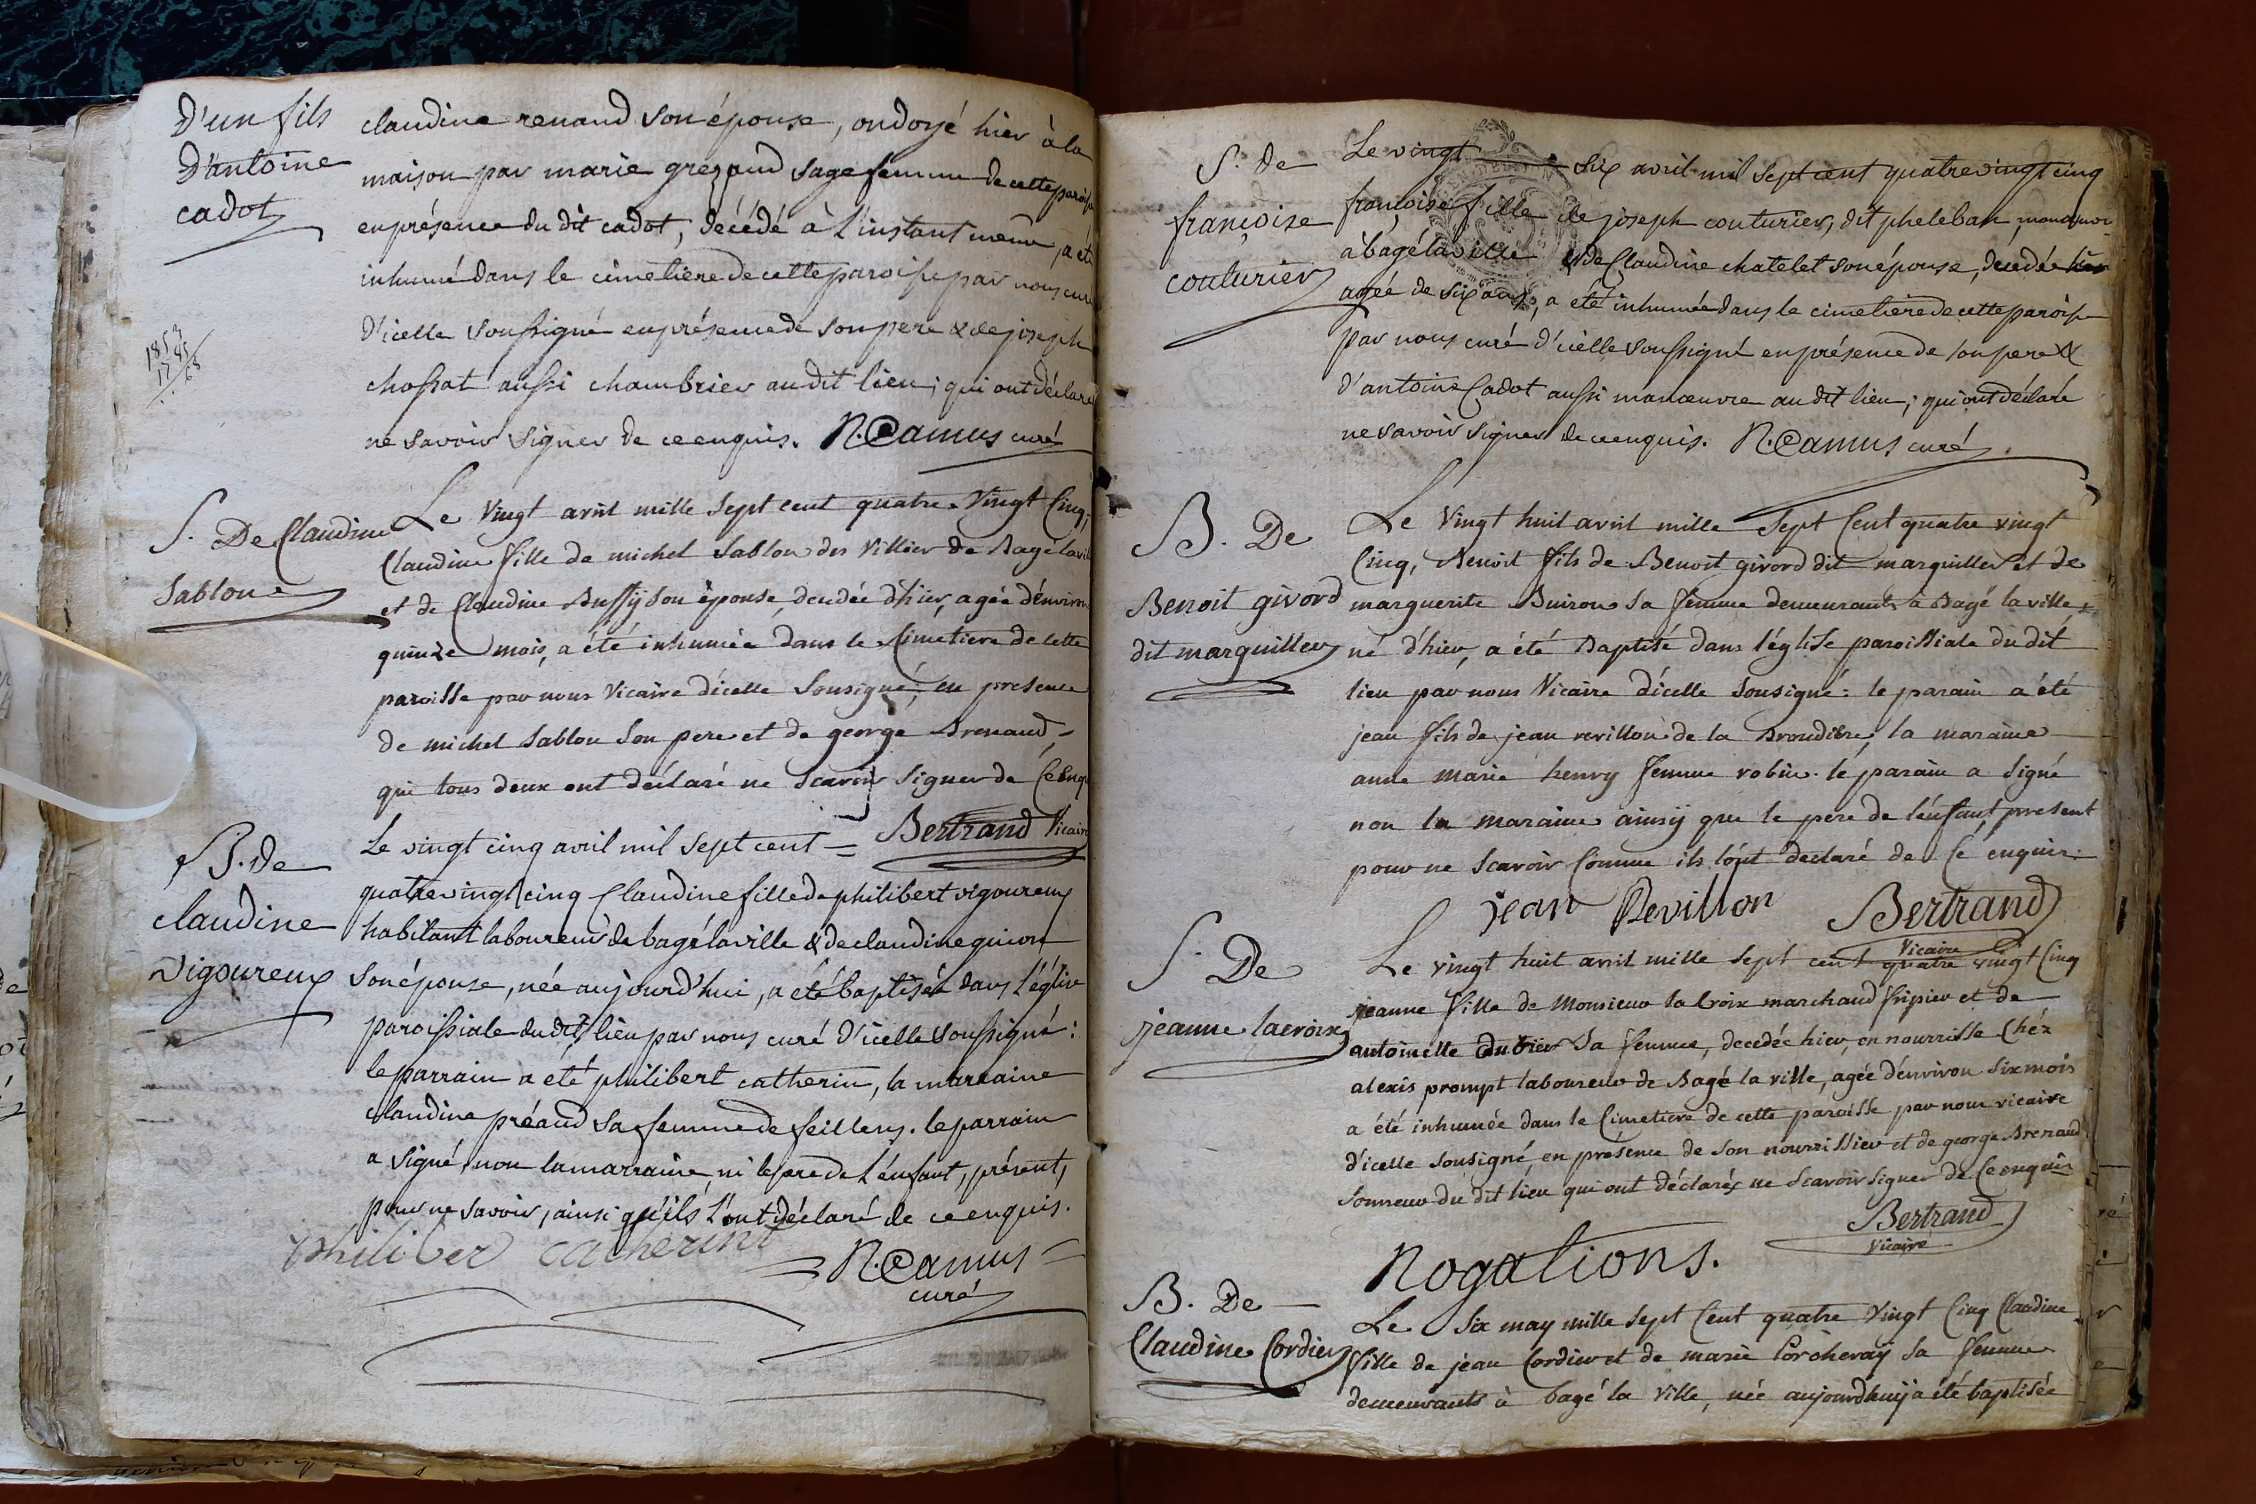 D'un fils
D'antoine
cadot
claudine renaud son épouse, ondoyé hier à la
maison par marie grezaud sage femme de cette paroisse
en présence du dit cadot, décédé à l'instant meme, a été
inhumé dans le cimetiere de cette paroisse par nous curé
d'icelle soussigné en présence de son pere & de joseph
chossat aussi chambrier au dit lieu; qui ont déclaré
ne savoir signer de ce enquis. N. Camus curé
1853
1785
68
S. De Claudine
Sablon
Le vingt avril mille sept cent quatre vingt Cinq,
Claudine fille de michel Sablon des Villiers de Bagé la vil
et de Claudine Buffy son épouse, decedée d'hier, agée d'environ
quinze mois, a été inhumée dans le Cimetiere de cette
paroisse par nous Vicaire d'icelle Sousigné; en presence
de michel Sablon son pere et de george Brenaud
qui tous deux ont déclaré ne scavoir signer de Ce Enq
Bertrand Vicaire
B. de
claudine
vigoureux
Le vingt cinq avril mil sept cent =
quatre vingt cinq Claudine fille de philibert vigoureux
habitant laboureur de bagé la ville & de claudine guion
son épouse, née aujourd'hui, a été baptisée dans l'église
paroissiale du dit lieu par nous curé d'icelle soussigné:
le parrain a été philibert catherin, la marraine
claudine préaud sa femme de feillens. le parrain
a signé, non la marraine, ni le pere de l'enfant, présent,
pour ne savoir, ainsi qu'ils l'ont déclaré de ce enquis.
philiber catherint
= N. Camus =
curé
S. de
françoise
couturier
Le vingt six avril mil sept cent quatre vingt cinq
françoise fille de joseph couturier, dit pheleban, manoeuvre
à bagé la ville & de Claudine chatelet son épouse, decedée hier
agée de six ans, a été inhumée dans le cimetiere de cette paroisse
par nous curé d'icelle soussigné en présence de son pere &
d'antoine Cadot aussi manoeuvre au dit lieu; qui ont déclaré
ne savoir signer de ce enquis. N. Camus curé
B. De
Benoit givord
dit marquiller
Le Vingt huit avril mille Sept Cent quatre vingt
Cinq, Benoit fils de Benoit givord dit marquiller et de
marguerite Buiron sa femme demeurants à Bagé la ville,
né d'hier, a été Baptisé dans l'église paroissiale du dit
lieu par nous Vicaire d'icelle Sousigné: le parain a été
jean fils de jean revillon de la Broudiere, la maraine
anne marie henry femme robin. le parain a signé
non la maraine ainsy que le pere de l'enfant present
pour ne scavoir Comme ils l'ont declaré de Ce enquis.
jean Revillon
Bertrand
Vicaire
S. De
jeanne lacroix
Le vingt huit avril mille sept cent quatre vingt Cinq
jeanne fille de Monsieur la Croix marchand fripier et de
antoinette sa femme, decedée hier, en nourrisse Chéz
alexis prompt laboureur de Bagé la ville, agée d'environ six mois
a été inhumée dans le Cimetiere de cette paroisse par nous vicaire
d'icelle sousigné en présence de son nourrissier et de george Brenaud
sonneur du dit lieu qui ont déclaréx ne scavoir signer de Ce enquis
Bertrand
Vicaire
Rogations.
B. De
Claudine Cordier
Le Six may mille sept Cent quatre Vingt Cinq Claudine
fille de jean Cordier et de marie Corcheray sa femme
demeurants à bagé la Ville, née aujourd'huy a été baptisée